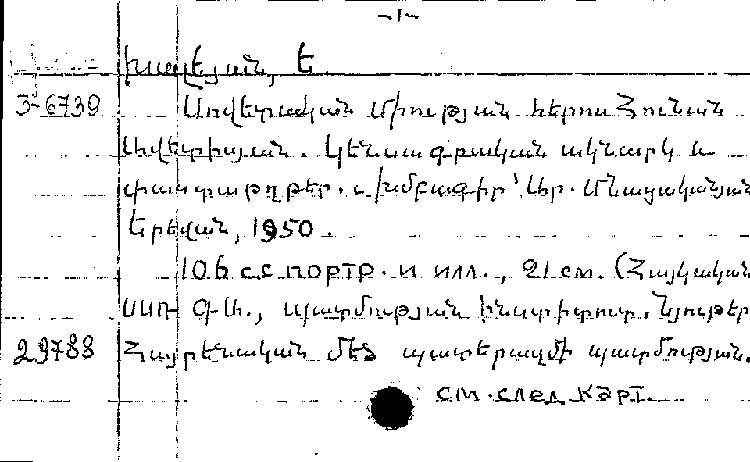 -1-
Խալեյան, Ե
3-6739 Սովետական Միության Հերոս Հունան
Ավետիսյան. Կենսագրական ակնարկ և
փաստաթղթեր. Խմբագիր՝ Սեր. Մնացականյան
Երևան, 1950.
106 с. с портр. и илл., 21 см. (Հայկական
ՍՍՌ ԳԱ., պատմության ինստիտուտ. Նյութեր
29788 Հայրենական մեծ պատերազմի պատմության.
см. след. карт.